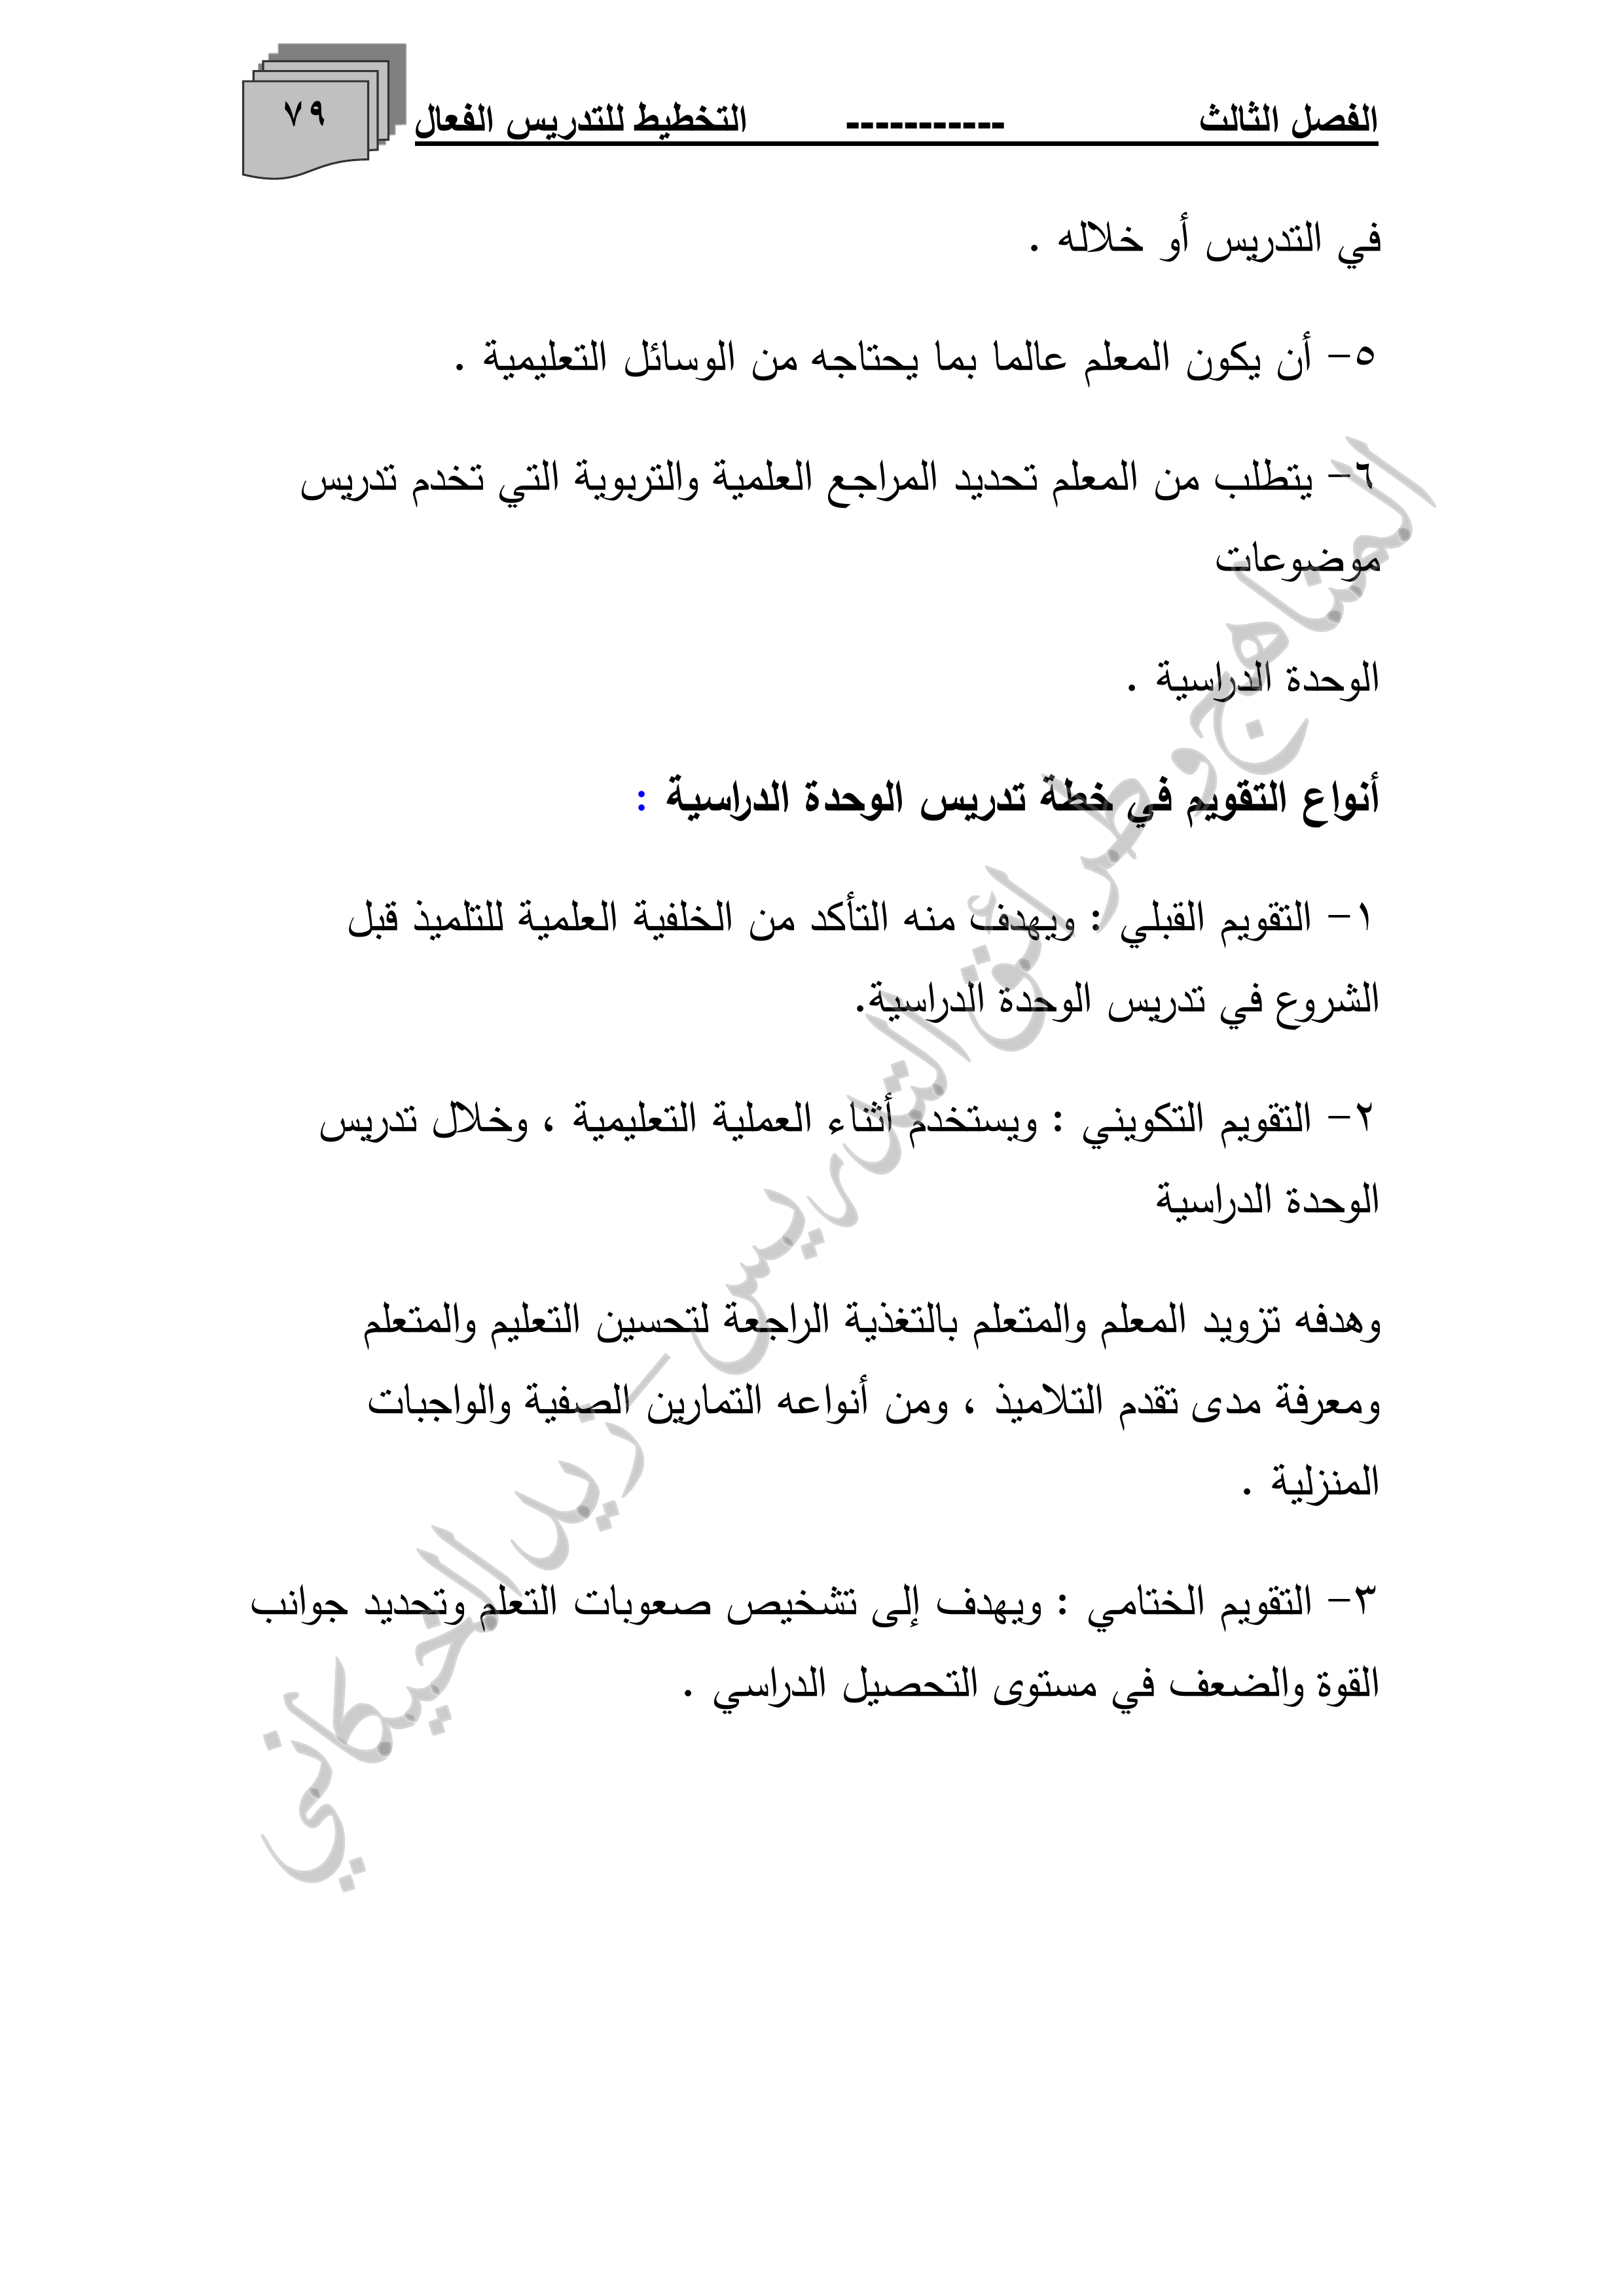 الفصل الثالث ----------- التخطيط للتدريس الفعال
٧٩
في التدريس أو خلاله .
٥- أن يكون المعلم عالما بما يحتاجه من الوسائل التعليمية .
٦- يتطلب من المعلم تحديد المراجع العلمية والتربوية التي تخدم تدريس
موضوعات
الوحدة الدراسية .
أنواع التقويم في خطة تدريس الوحدة الدراسية :
١- التقويم القبلي : ويهدف منه التأكد من الخلفية العلمية للتلميذ قبل
الشروع في تدريس الوحدة الدراسية.
٢- التقويم التكويني : ويستخدم أثناء العملية التعليمية ، وخلال تدريس
الوحدة الدراسية
وهدفه تزويد المعلم والمتعلم بالتغذية الراجعة لتحسين التعليم والمتعلم
ومعرفة مدى تقدم التلاميذ ، ومن أنواعه التمارين الصفية والواجبات
المنزلية .
٣- التقويم الختامي : ويهدف إلى تشخيص صعوبات التعلم وتحديد جوانب
القوة والضعف في مستوى التحصيل الدراسي .
المناهج وطرائق التدريس - زيد الخيكاني